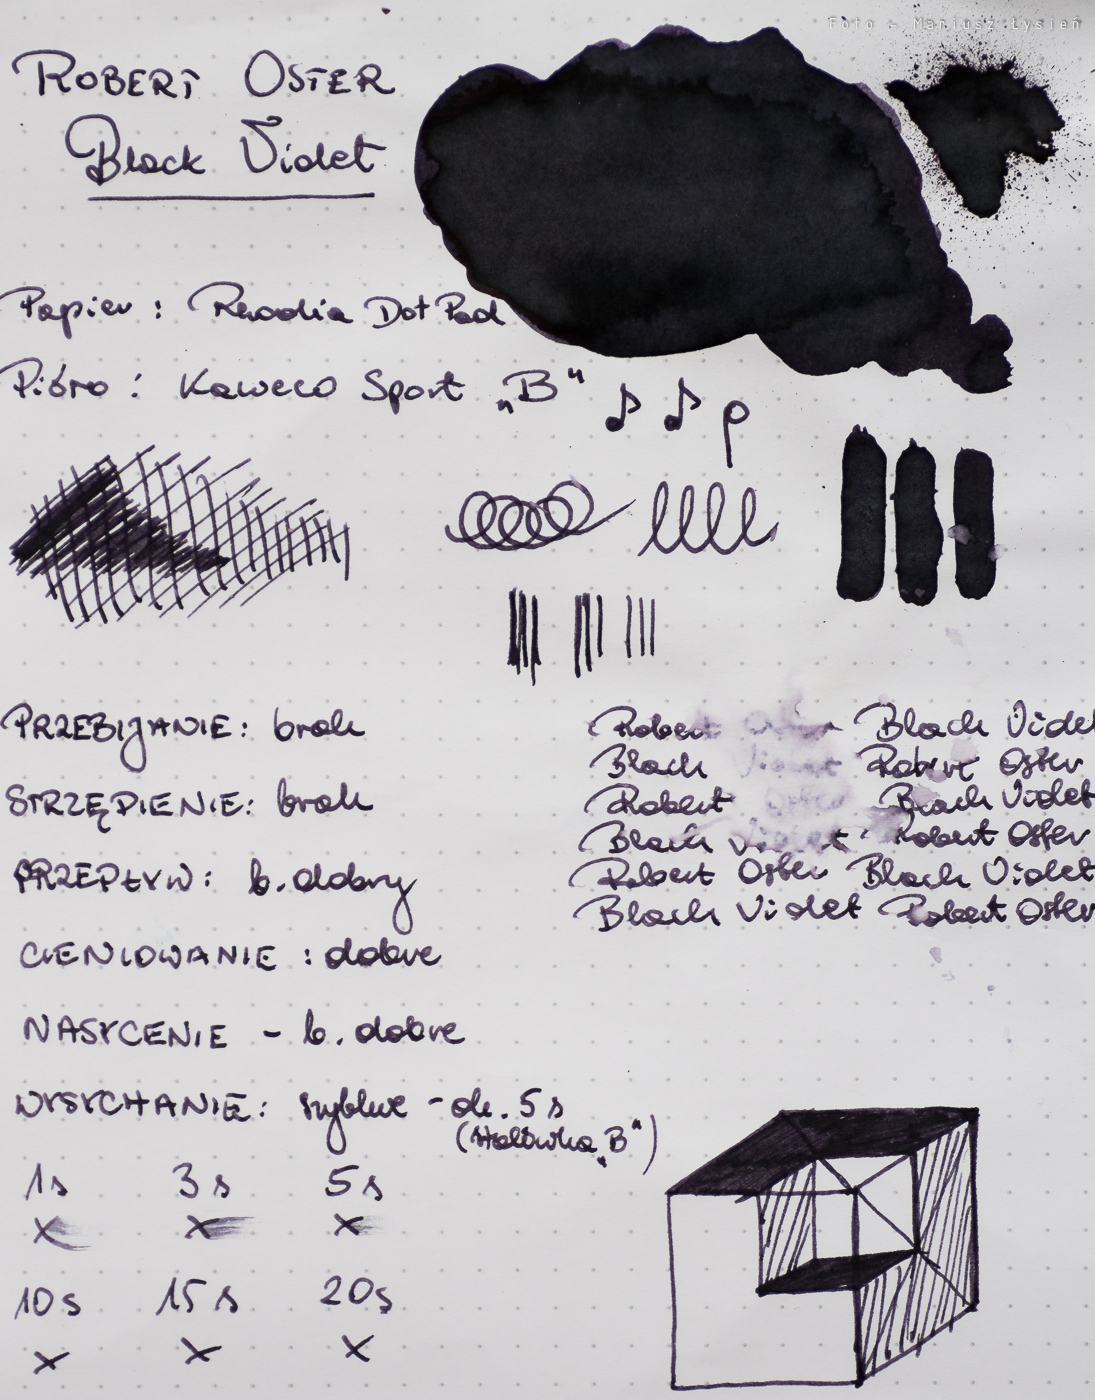 Foto - Mariusz Łysień
ROBERT OSTER
Black Violet
Papier : Rhodia Dot Pad
Pióro : Kaweco Sport „B"
PRZEBIJANIE: brak
STRZĘPIENIE: brak
PRZEPŁYW: b. dobry
CIENIOWANIE : dobre
NASYCENIE - b. dobre
WYSYCHANIE: szybkie - ok. 5 s
(stalówka „B")
1s 3s 5s
x x x
10s 15s 20s
x x x
Robert Oster Black Violet
Black Violet Robert Oster
Robert Oster Black Violet
Black Violet Robert Oster
Robert Oster Black Violet
Black Violet Robert Oster